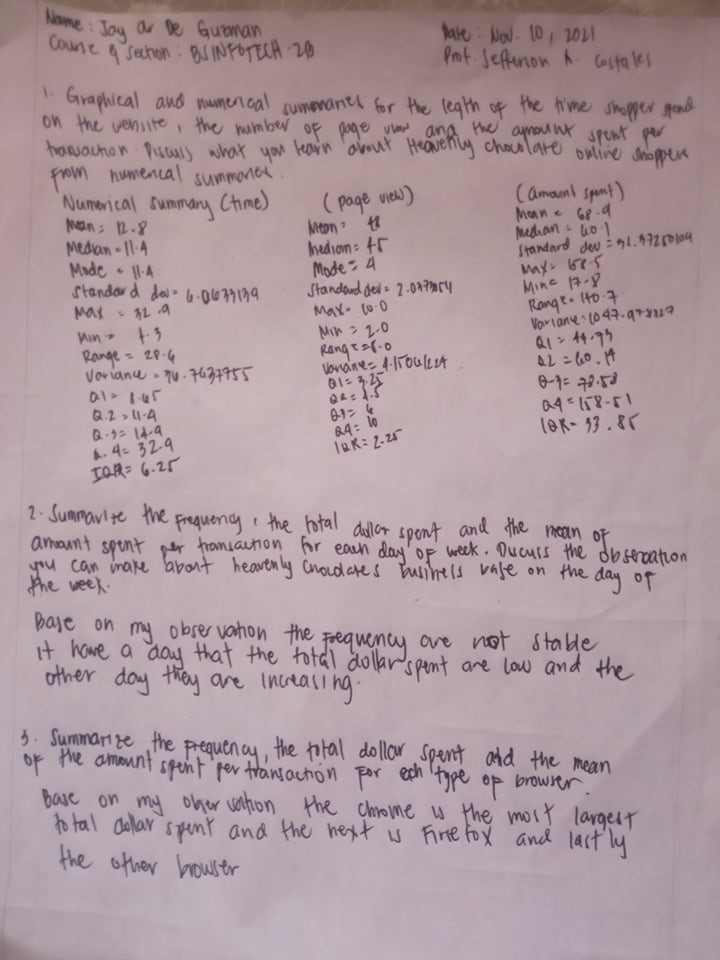 Name : Jay ar De Guzman
Date : Nov. 10, 2021
Course & Section : BSINFOTECH - 2D
Prof. Jefferson A. Costales
1. Graphical and numerical summaries for the legth of the time shopper spend
on the website, the number of page view and the amount spent per
transaction. Discuss what you learn about Heavenly chocolate online shoppers
from numerical summaries.
Numerical summary (time)
Mean = 12.8
Median = 11.4
Mode = 11.4
Standard dev = 6.0633139
Max = 32.9
Min = 4.3
Range = 28.6
Variance = 36.7637755
Q1 = 8.65
Q.2 = 11.4
Q.3 = 14.9
Q.4 = 32.9
IQR = 6.25
(page view)
Mean = 48
Median = 45
Mode = 4
Standard dev =
Max = 10.0
Min = 2.0
Range = 8.0
Variance =
Q1 = 3.25
Q2 = 4.5
Q3 = 6
Q4 = 10
IQR = 2.25
(amount spent)
Mean = 68.9
Median = 60.1
Standard dev =
Max = 158.5
Min = 17.8
Range = 140.7
Variance =
Q1 = 44.93
Q2 = 60.14
Q.3 =
Q4 = 158.51
IQR = 33.85
2. Summarize the frequency, the total dollar spent and the mean of
amount spent per transaction for each day of week. Discuss the observation
you can make about heavenly chocolates business base on the day of
the week.
Base on my observation the frequency are not stable
it have a day that the total dollar spent are low and the
other day they are increasing.
3. Summarize the frequency, the total dollar spent and the mean
of the amount spent per transaction for ech type of browser.
Base on my observation the chrome is the most largest
total dollar spent and the next is Firefox and lastly
the other browser